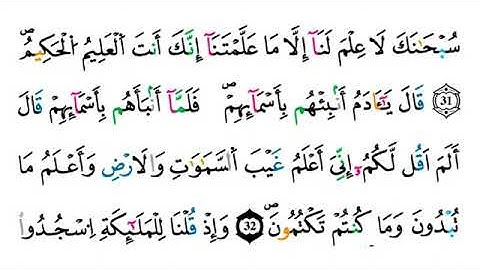 سُبْحَٰنَكَ لَا عِلْمَ لَنَآ إِلَّا مَا عَلَّمْتَنَآ إِنَّكَ أَنتَ اَلْعَلِيمُ اُلْحَكِيمُۖ
31 قَالَ يَٰٓـَٔادَمُ أَنۢبِئْهُم بِأَسْمَآئِهِمْۖ فَلَمَّآ أَنۢبَأَهُم بِأَسْمَآئِهِمْ قَالَ
أَلَمْ أَقُل لَّكُمُۥٓ إِنِّىَ أَعْلَمُ غَيْبَ اَلسَّمَٰوَٰتِ وَالَارْضِ وَأَعْلَمُ مَا
تُبْدُونَ وَمَا كُنتُمْ تَكْتُمُونَۖ 32 وَإِذْ قُلْنَا لِلْمَلَٰٓئِكَةِ اِسْجُدُواْ